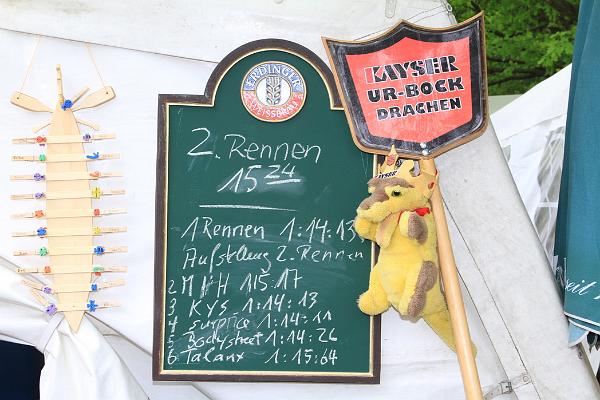 ERDINGER
WEISSBRÄU
2. Rennen
15 24
1 Rennen 1:14:13
Aufstellung 2. Rennen
2 M H H 1:15:17
3 KYS 1:14:13
4 Surprice 1:14:11
5 Bodystreet 1:14:26
6 Talanx 1:15:64
KAYSER
UR-BOCK
DRACHEN
KAYSER